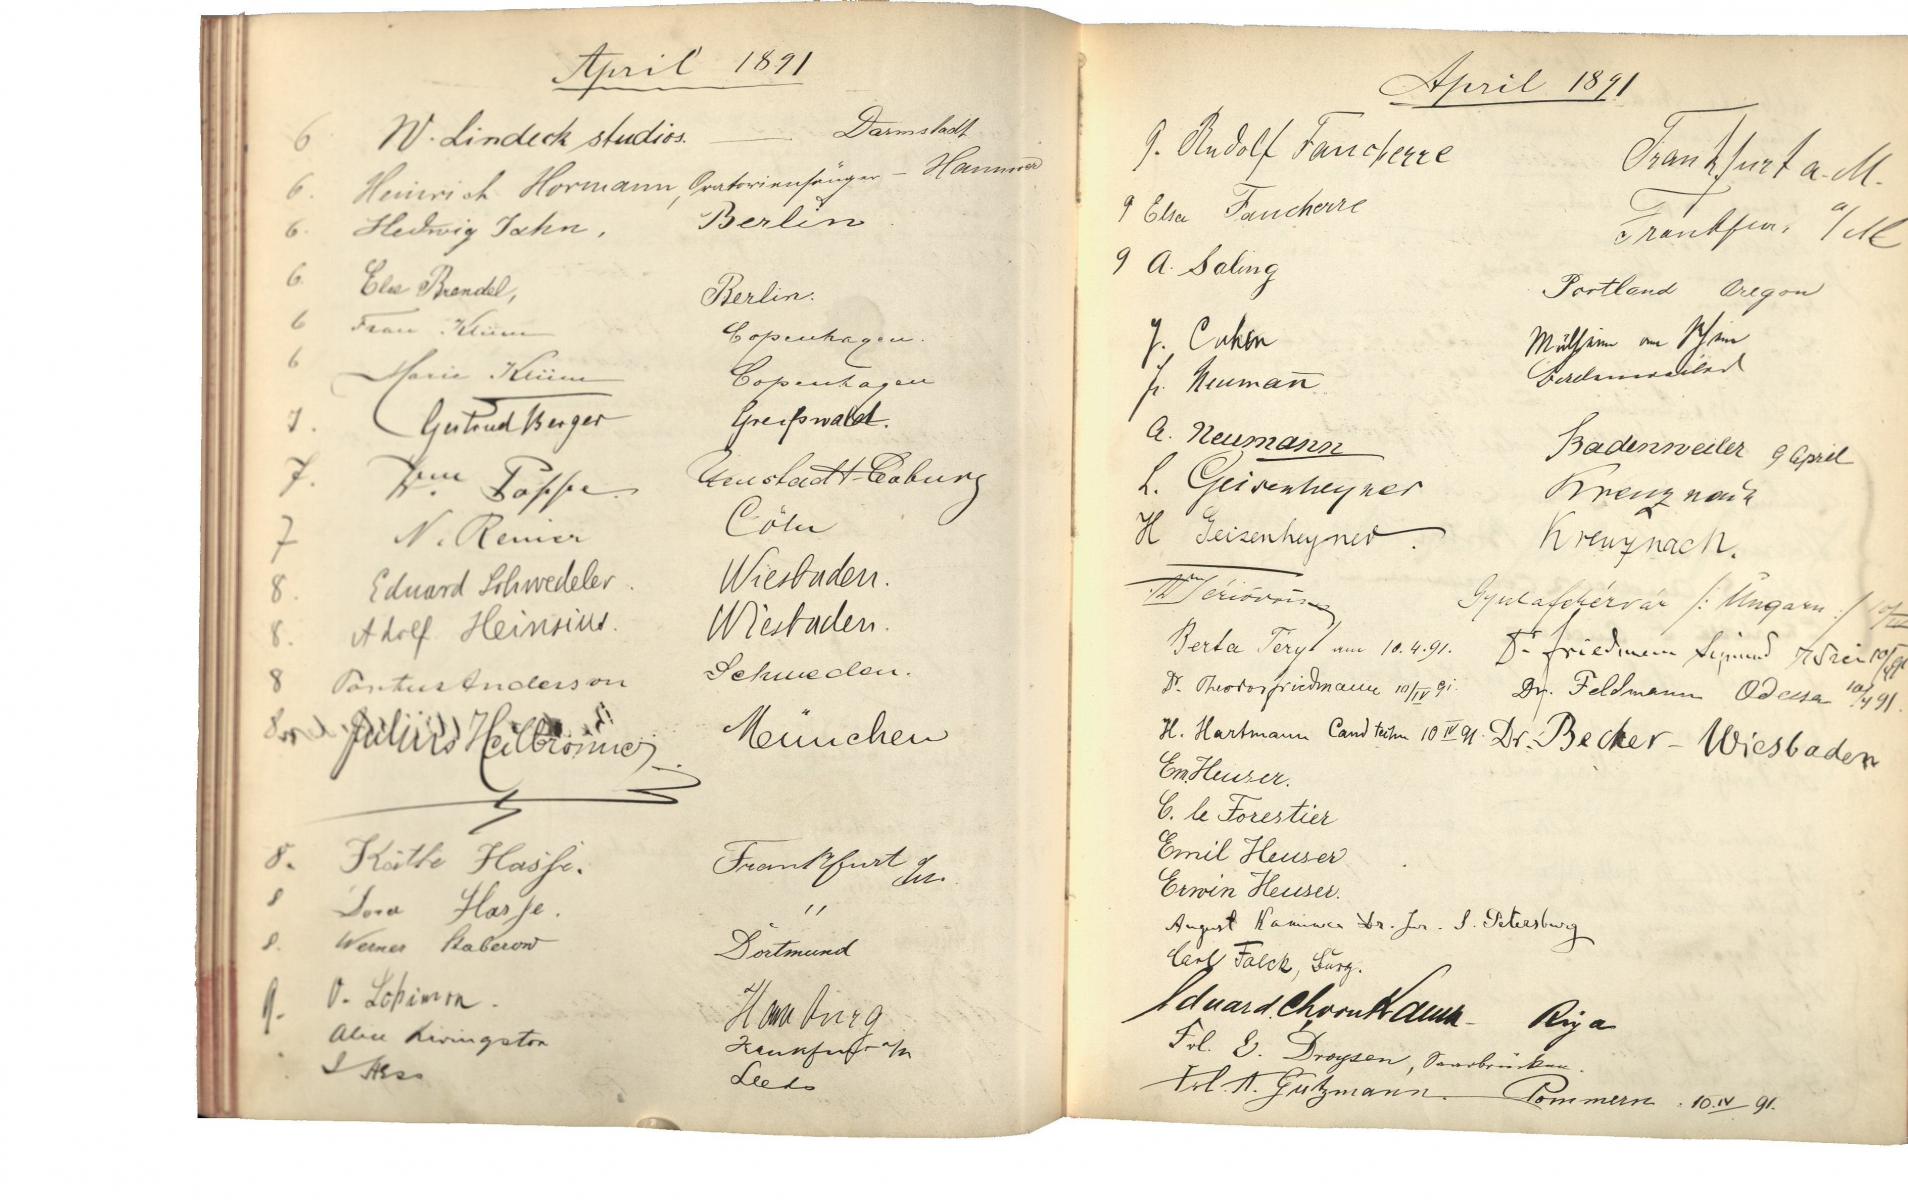 April 1891
6 W. Lindeck studios. — Darmstadt
6. Heinrich Hormann, Oratoriensänger – Hannover
6. Hedwig Jahn, Berlin
6. Else Brendel, Berlin.
6 Frau Copenhagen.
6 Marie Copenhagen
7. Gertrud Berger Greifswald.
7. Poppe. Coburg
7 N. Reinier Cöln
8. Eduard Schwedeler. Wiesbaden.
8. Adolf Heinsius. Wiesbaden.
8 Pontus Anderson Schweden.
8 Julius Heilbronner München
8. Käthe Hasse. Frankfurt a/M.
8 Dora Hasse. "
8. Werner Dortmund
9. O. Hamburg
Livingston Frankfurt a/M
Leeds
April 1891
9. Rudolf Faucherre Frankfurt a. M.
9 Elsa Faucherre a/M
9 A. Saling Portland Oregon
J. Cohen Mülheim am Rhein
Neumann̄
A. Neumann Badenweiler 9 April
L. Geisenheyner Kreuznach
H Geisenheyner. Kreuznach.
Gyulafehérvár /: Ungarn :/
Berta am 10.4.91. Dr Friedmann
Dr. Theodor Friedmann 10/IV 91. Dr. Feldmann Odessa 91.
H. Hartmann Cand techn 10 IV 91. Dr. Becker – Wiesbaden
Em. Heuser.
C. le Forestier
Emil Heuser
Erwin Heuser.
August Dr. Jur. S. Petersburg
Carl Falck,
Eduard Riga
Frl. E. Droysen, Saarbrücken.
Frl. A. Gützmann. Pommern. 10.IV 91.